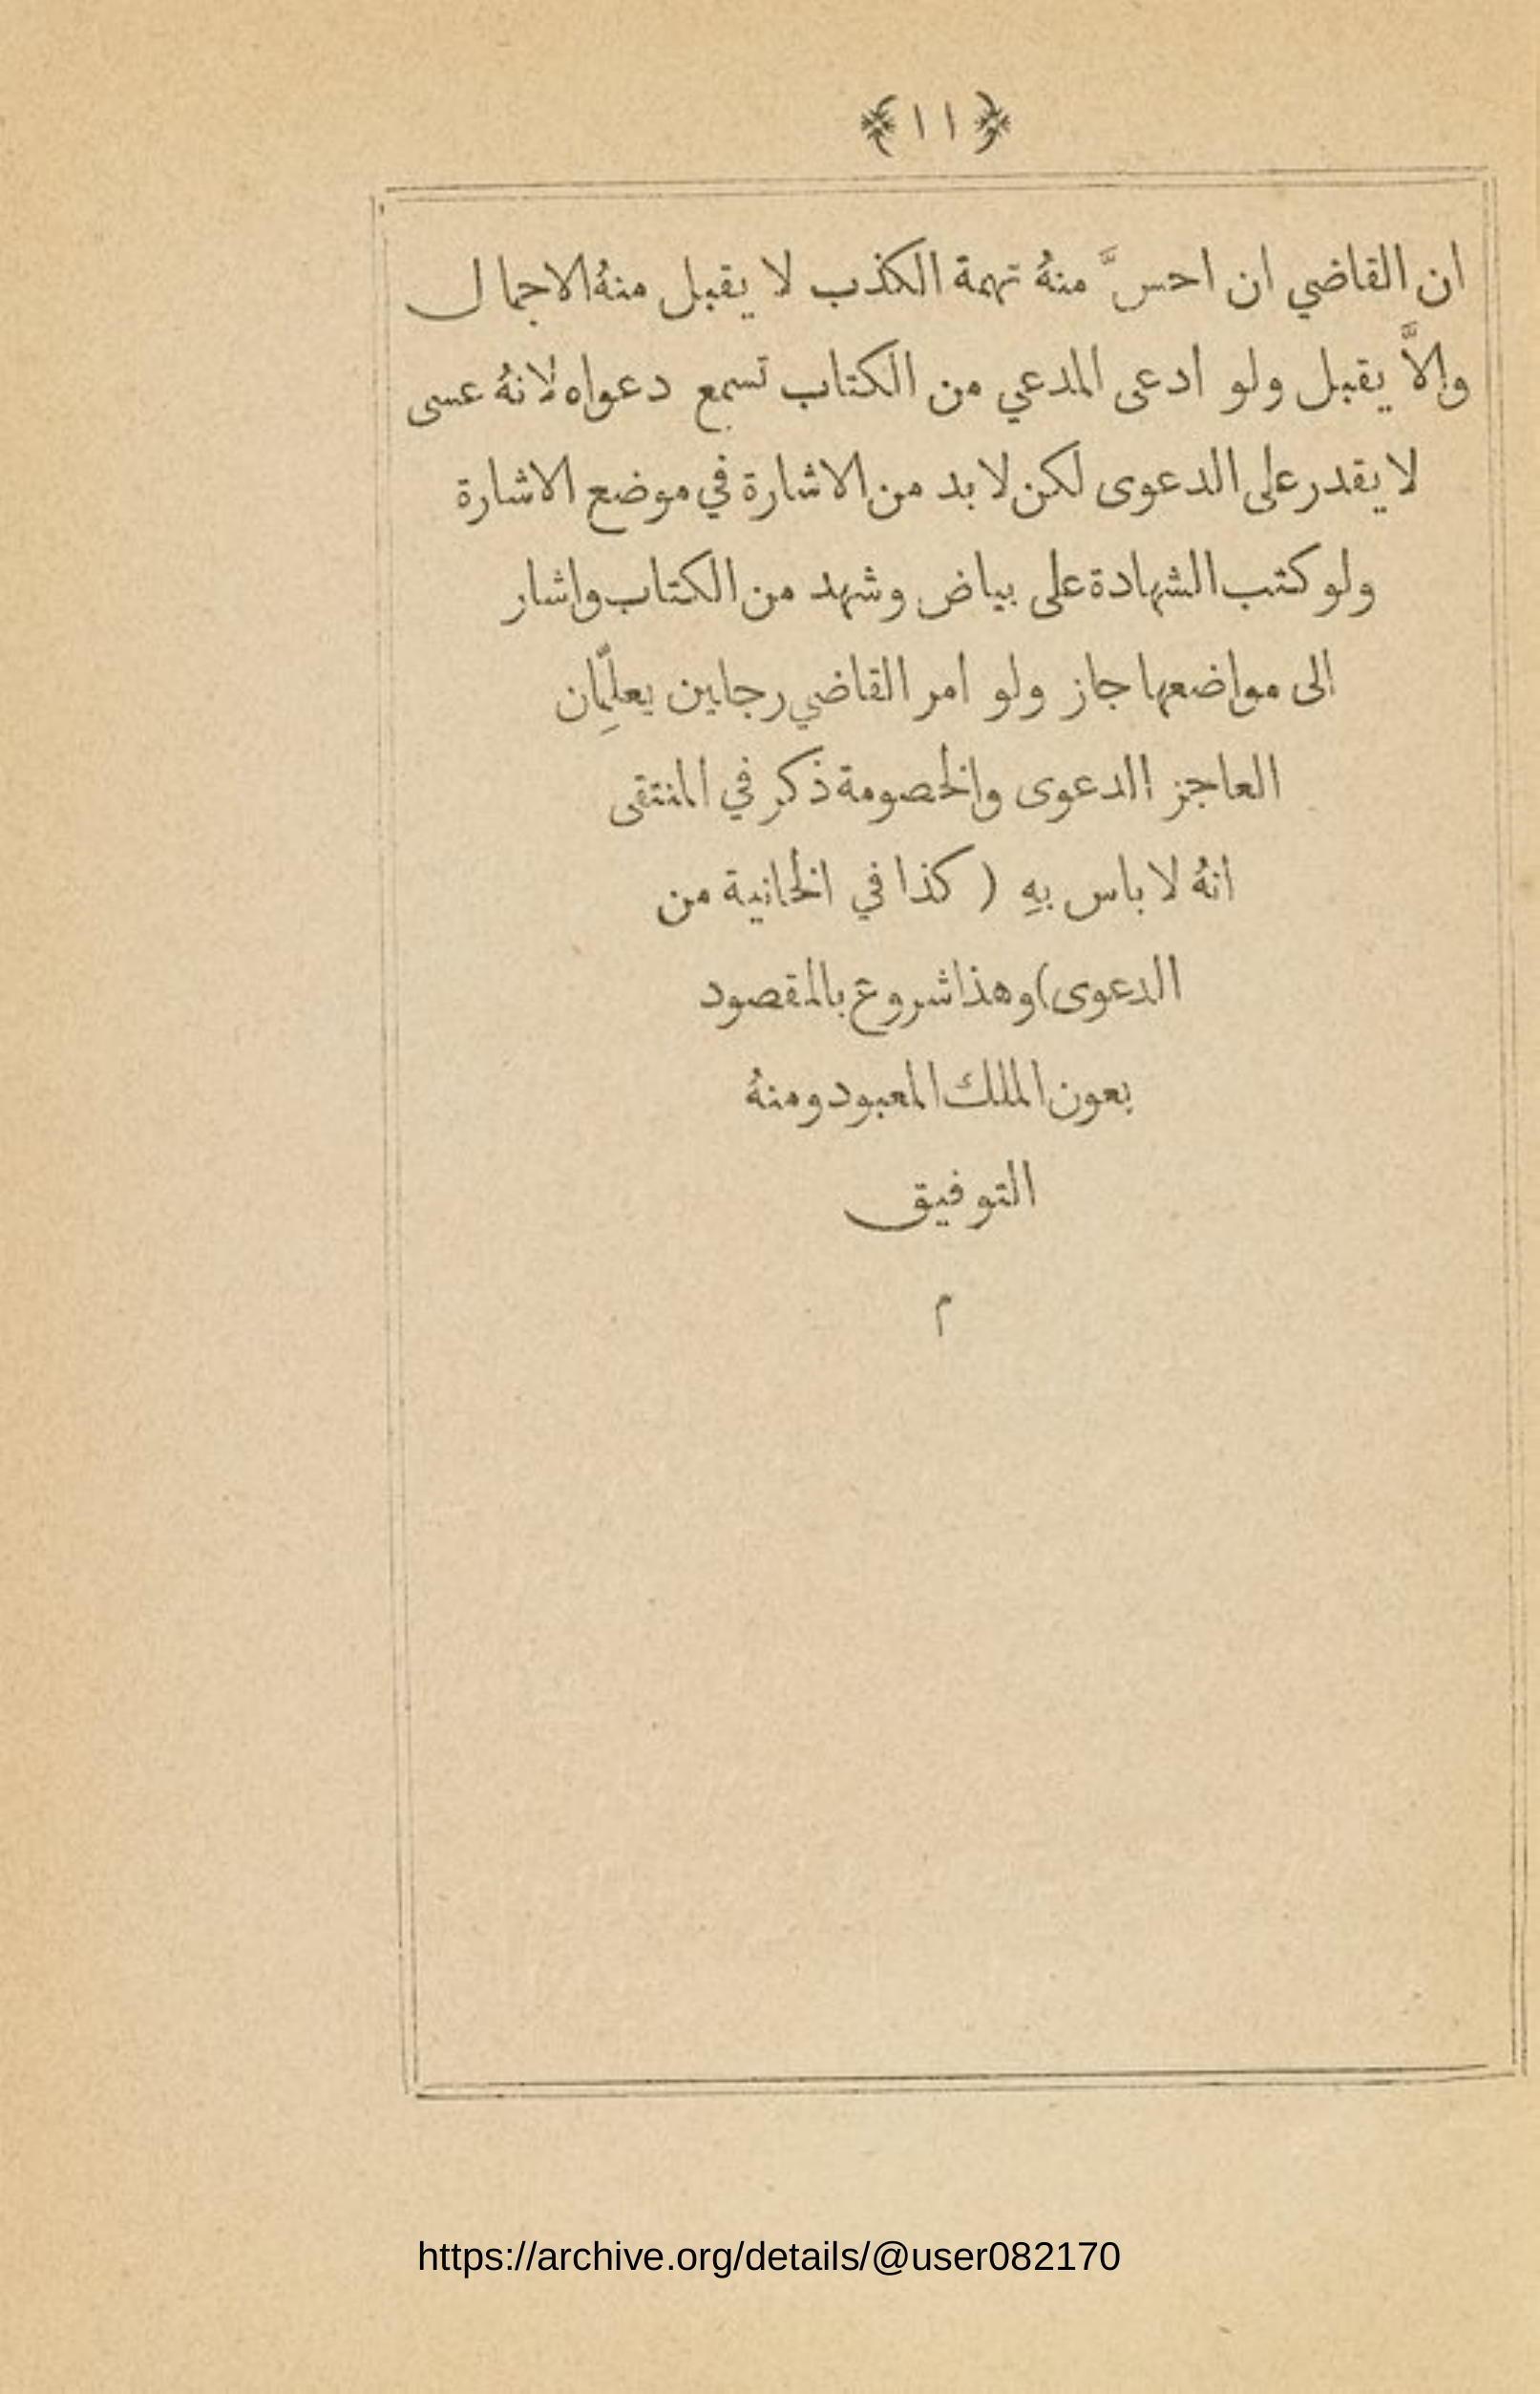 ﴿١١﴾
ان القاضي ان احسَّ منهُ تهمة الكذب لا يقبل منهُ الاجمال
والاَّ يقبل ولو ادعى المدعي من الكتاب تسمع دعواه لانهُ عسى
لا يقدر على الدعوى لكن لا بد من الاشارة في موضع الاشارة
ولو كتب الشهادة على بياض وشهد من الكتاب واشار
الى مواضعها جاز ولو امر القاضي رجلين يعلِّمان
العاجز الدعوى والخصومة ذكر في المنتقى
انهُ لا باس بهِ ( كذا في الخانية من
الدعوى) وهذا شروع بالمقصود
بعون الملك المعبود ومنهُ
التوفيق
م
https://archive.org/details/@user082170